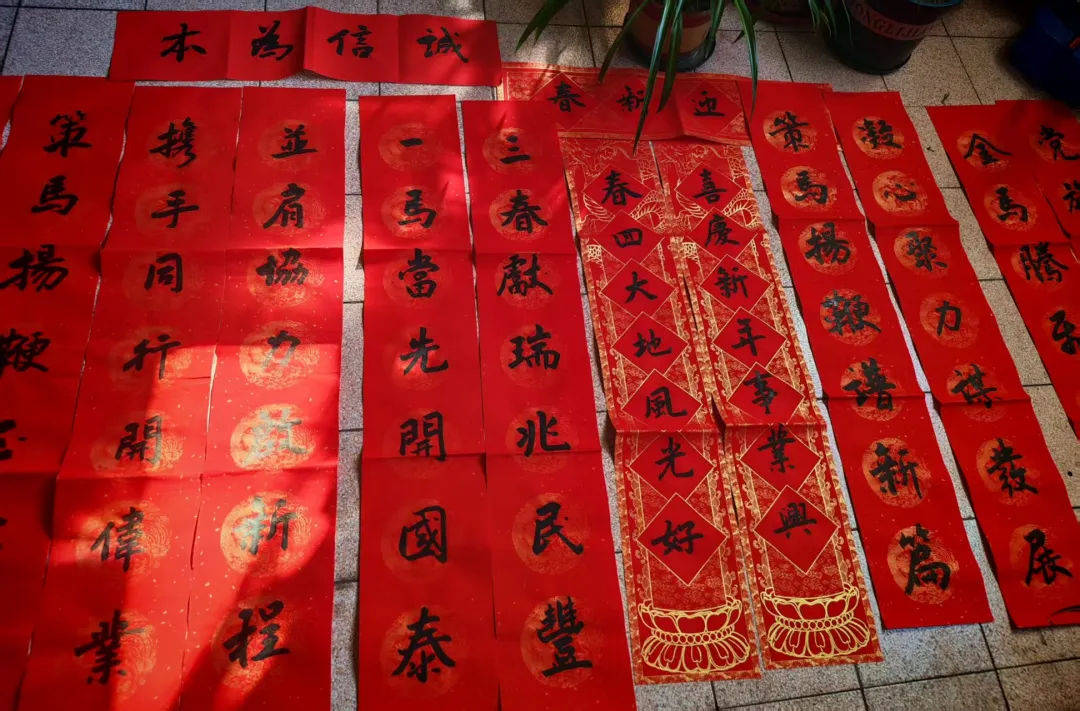 誠信為本
迎新春
策馬揚鞭
攜手同行開偉業
並肩協力啟新程
一馬當先開國泰
三春獻瑞兆民豐
春四大地風光好
喜慶新年事業興
策馬揚鞭譜新篇
心聚力謀發展
金馬騰
党旗